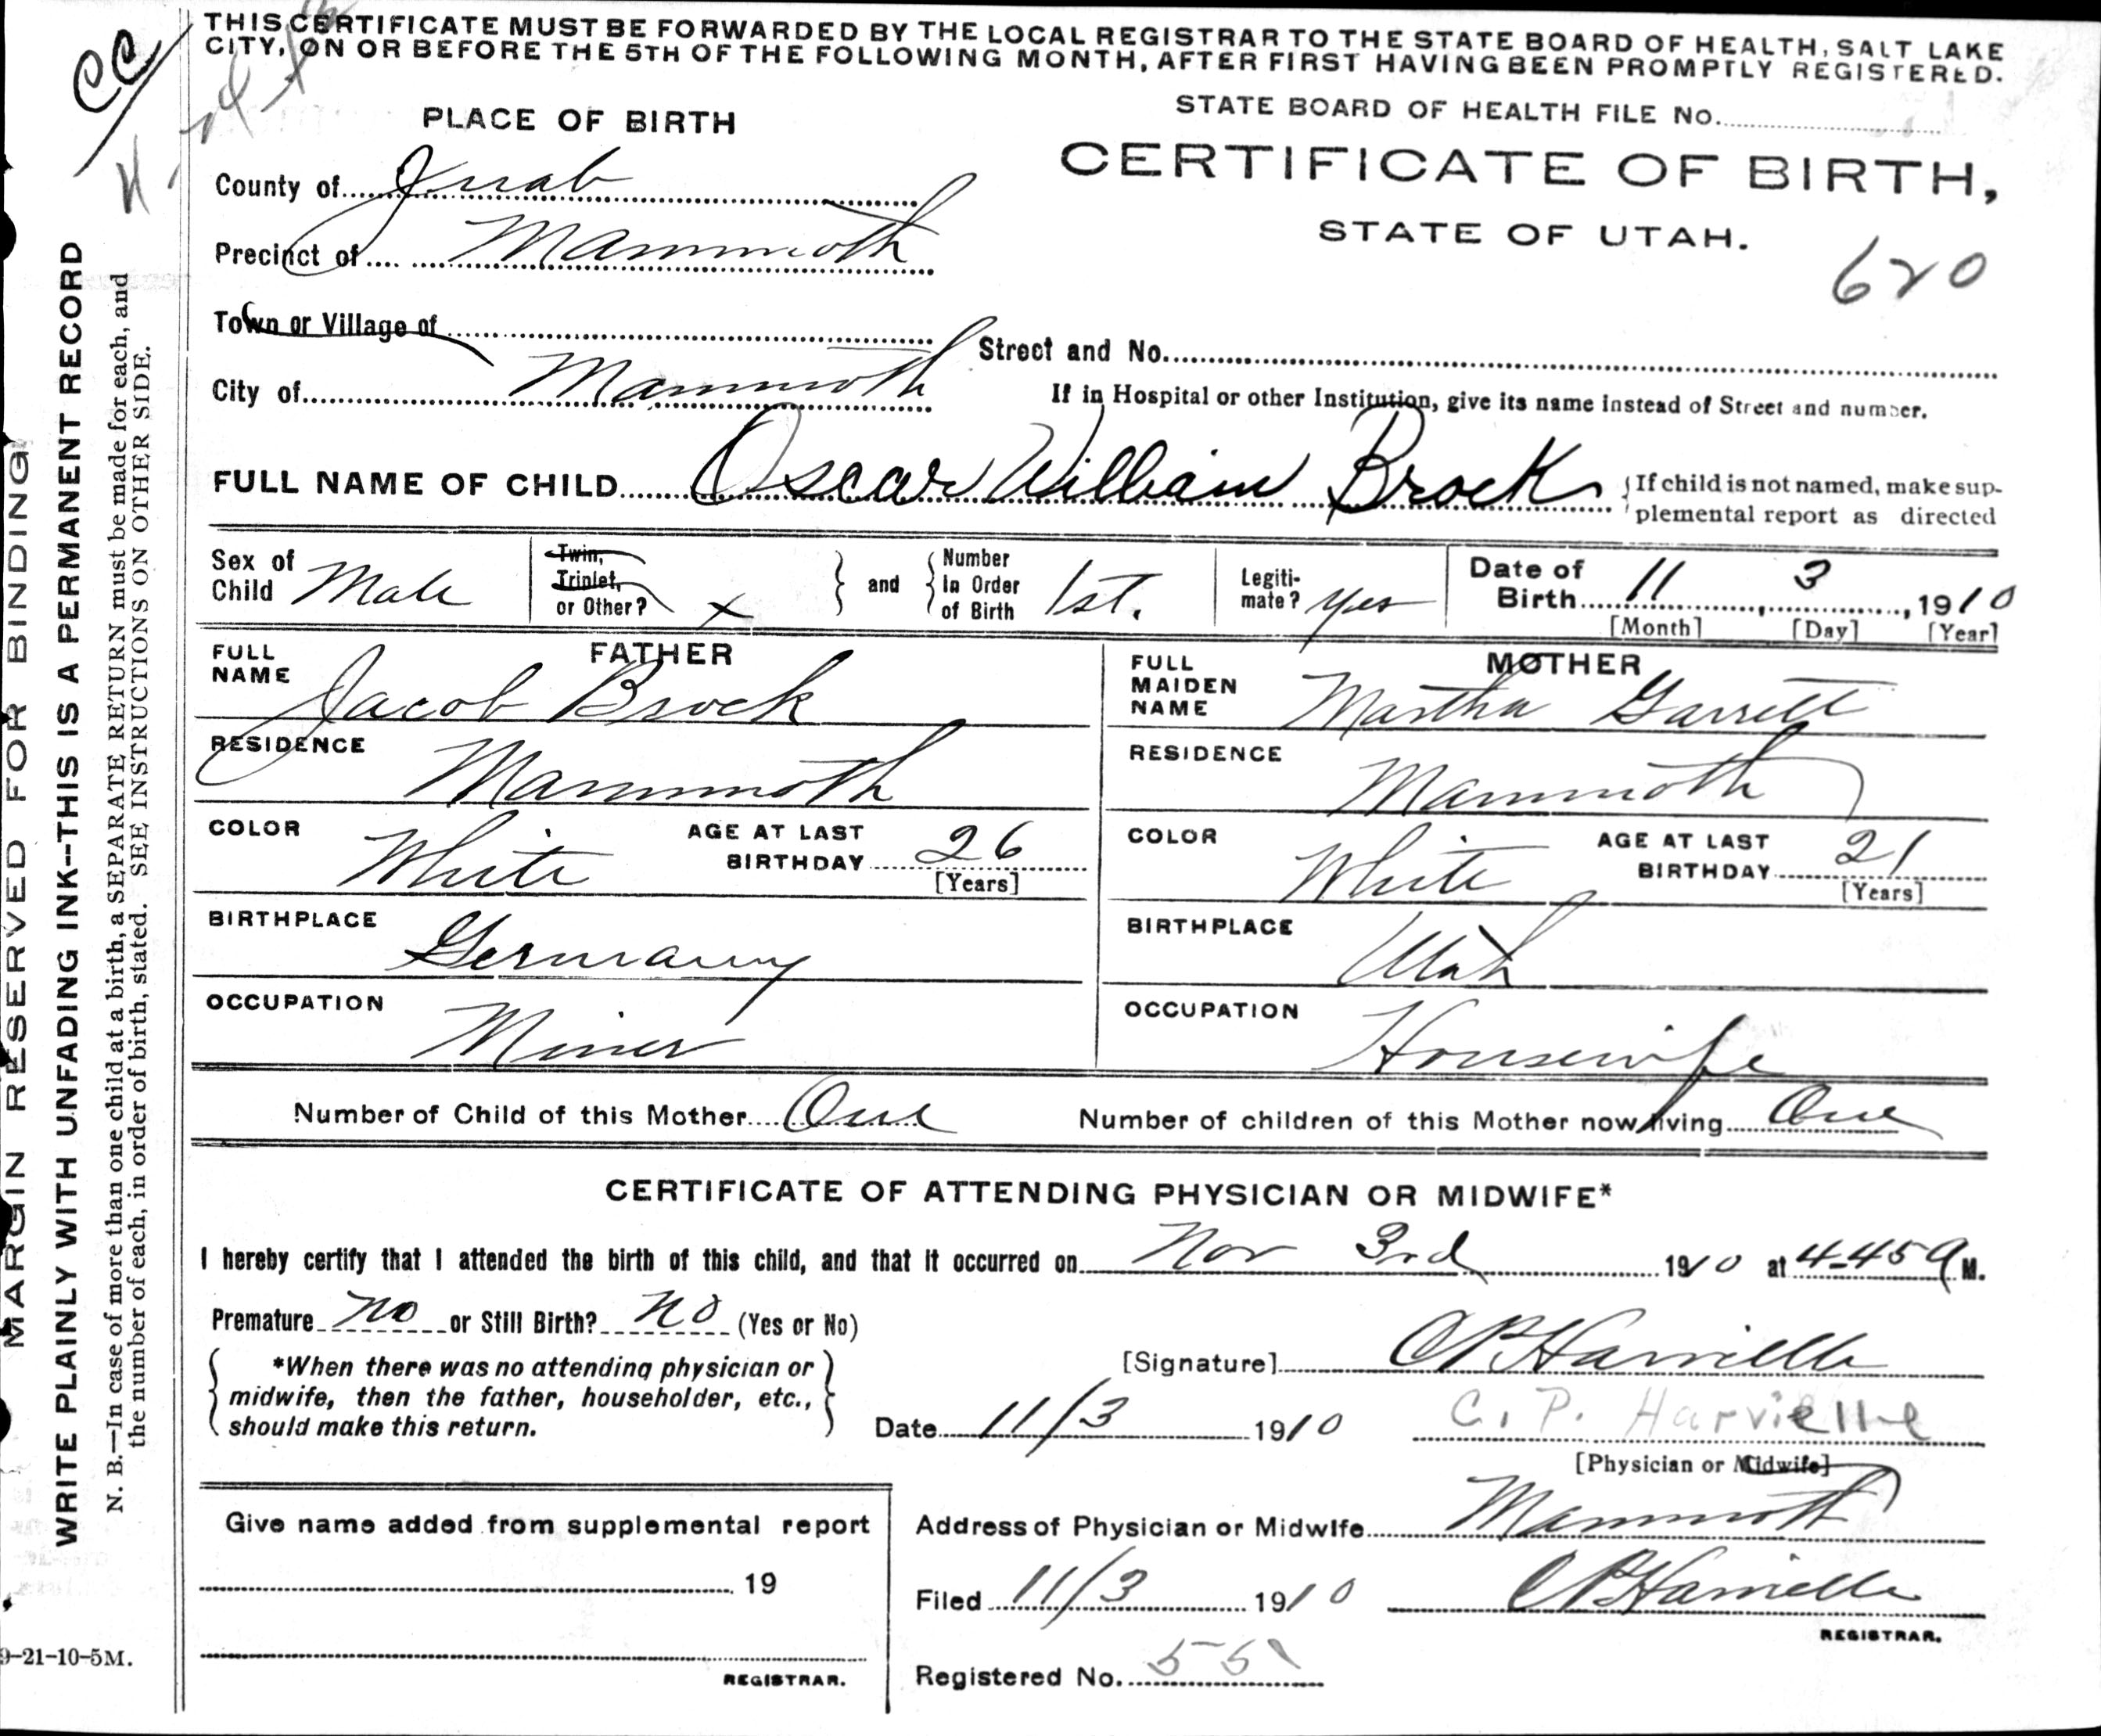 THIS CERTIFICATE MUST BE FORWARDED BY THE LOCAL REGISTRAR TO THE STATE BOARD OF HEALTH, SALT LAKE
CITY, ON OR BEFORE THE 5TH OF THE FOLLOWING MONTH, AFTER FIRST HAVING BEEN PROMPTLY REGISTERED.
CC
PLACE OF BIRTH
STATE BOARD OF HEALTH FILE No.
CERTIFICATE OF BIRTH,
STATE OF UTAH.
620
County of Juab
Precinct of Mammoth
Town or Village of
Street and No.
City of Mammoth
If in Hospital or other Institution, give its name instead of Street and number.
FULL NAME OF CHILD Oscar William Brock
If child is not named, make sup-
plemental report as directed
Sex of Child Male
Twin, Triplet, or Other? x
and Number In Order of Birth 1st.
Legiti-mate? yes
Date of Birth 11, 3, 1910
[Month] [Day] [Year]
FATHER
FULL NAME Jacob Brock
RESIDENCE Mammoth
COLOR White AGE AT LAST BIRTHDAY 26
[Years]
BIRTHPLACE Germany
OCCUPATION Miner
MOTHER
FULL MAIDEN NAME Martha Garrett
RESIDENCE Mammoth
COLOR White AGE AT LAST BIRTHDAY 21
[Years]
BIRTHPLACE Utah
OCCUPATION Housewife
Number of Child of this Mother One Number of children of this Mother now living One
CERTIFICATE OF ATTENDING PHYSICIAN OR MIDWIFE*
I hereby certify that I attended the birth of this child, and that it occurred on Nov 3rd 1910 at 4-45 a M.
Premature no or Still Birth? no (Yes or No)
*When there was no attending physician or
midwife, then the father, householder, etc.,
should make this return.
[Signature] CP Harvielle
Date 11/3 1910 C. P. Harvielle
[Physician or Midwife]
Give name added from supplemental report
19
REGISTRAR.
Address of Physician or Midwife Mammoth
Filed 11/3 1910 CP Harvielle
REGISTRAR.
Registered No. 55
MARGIN RESERVED FOR BINDING
WRITE PLAINLY WITH UNFADING INK--THIS IS A PERMANENT RECORD
N. B.—In case of more than one child at a birth, a SEPARATE RETURN must be made for each, and
the number of each, in order of birth, stated. SEE INSTRUCTIONS ON OTHER SIDE.
9-21-10-5M.